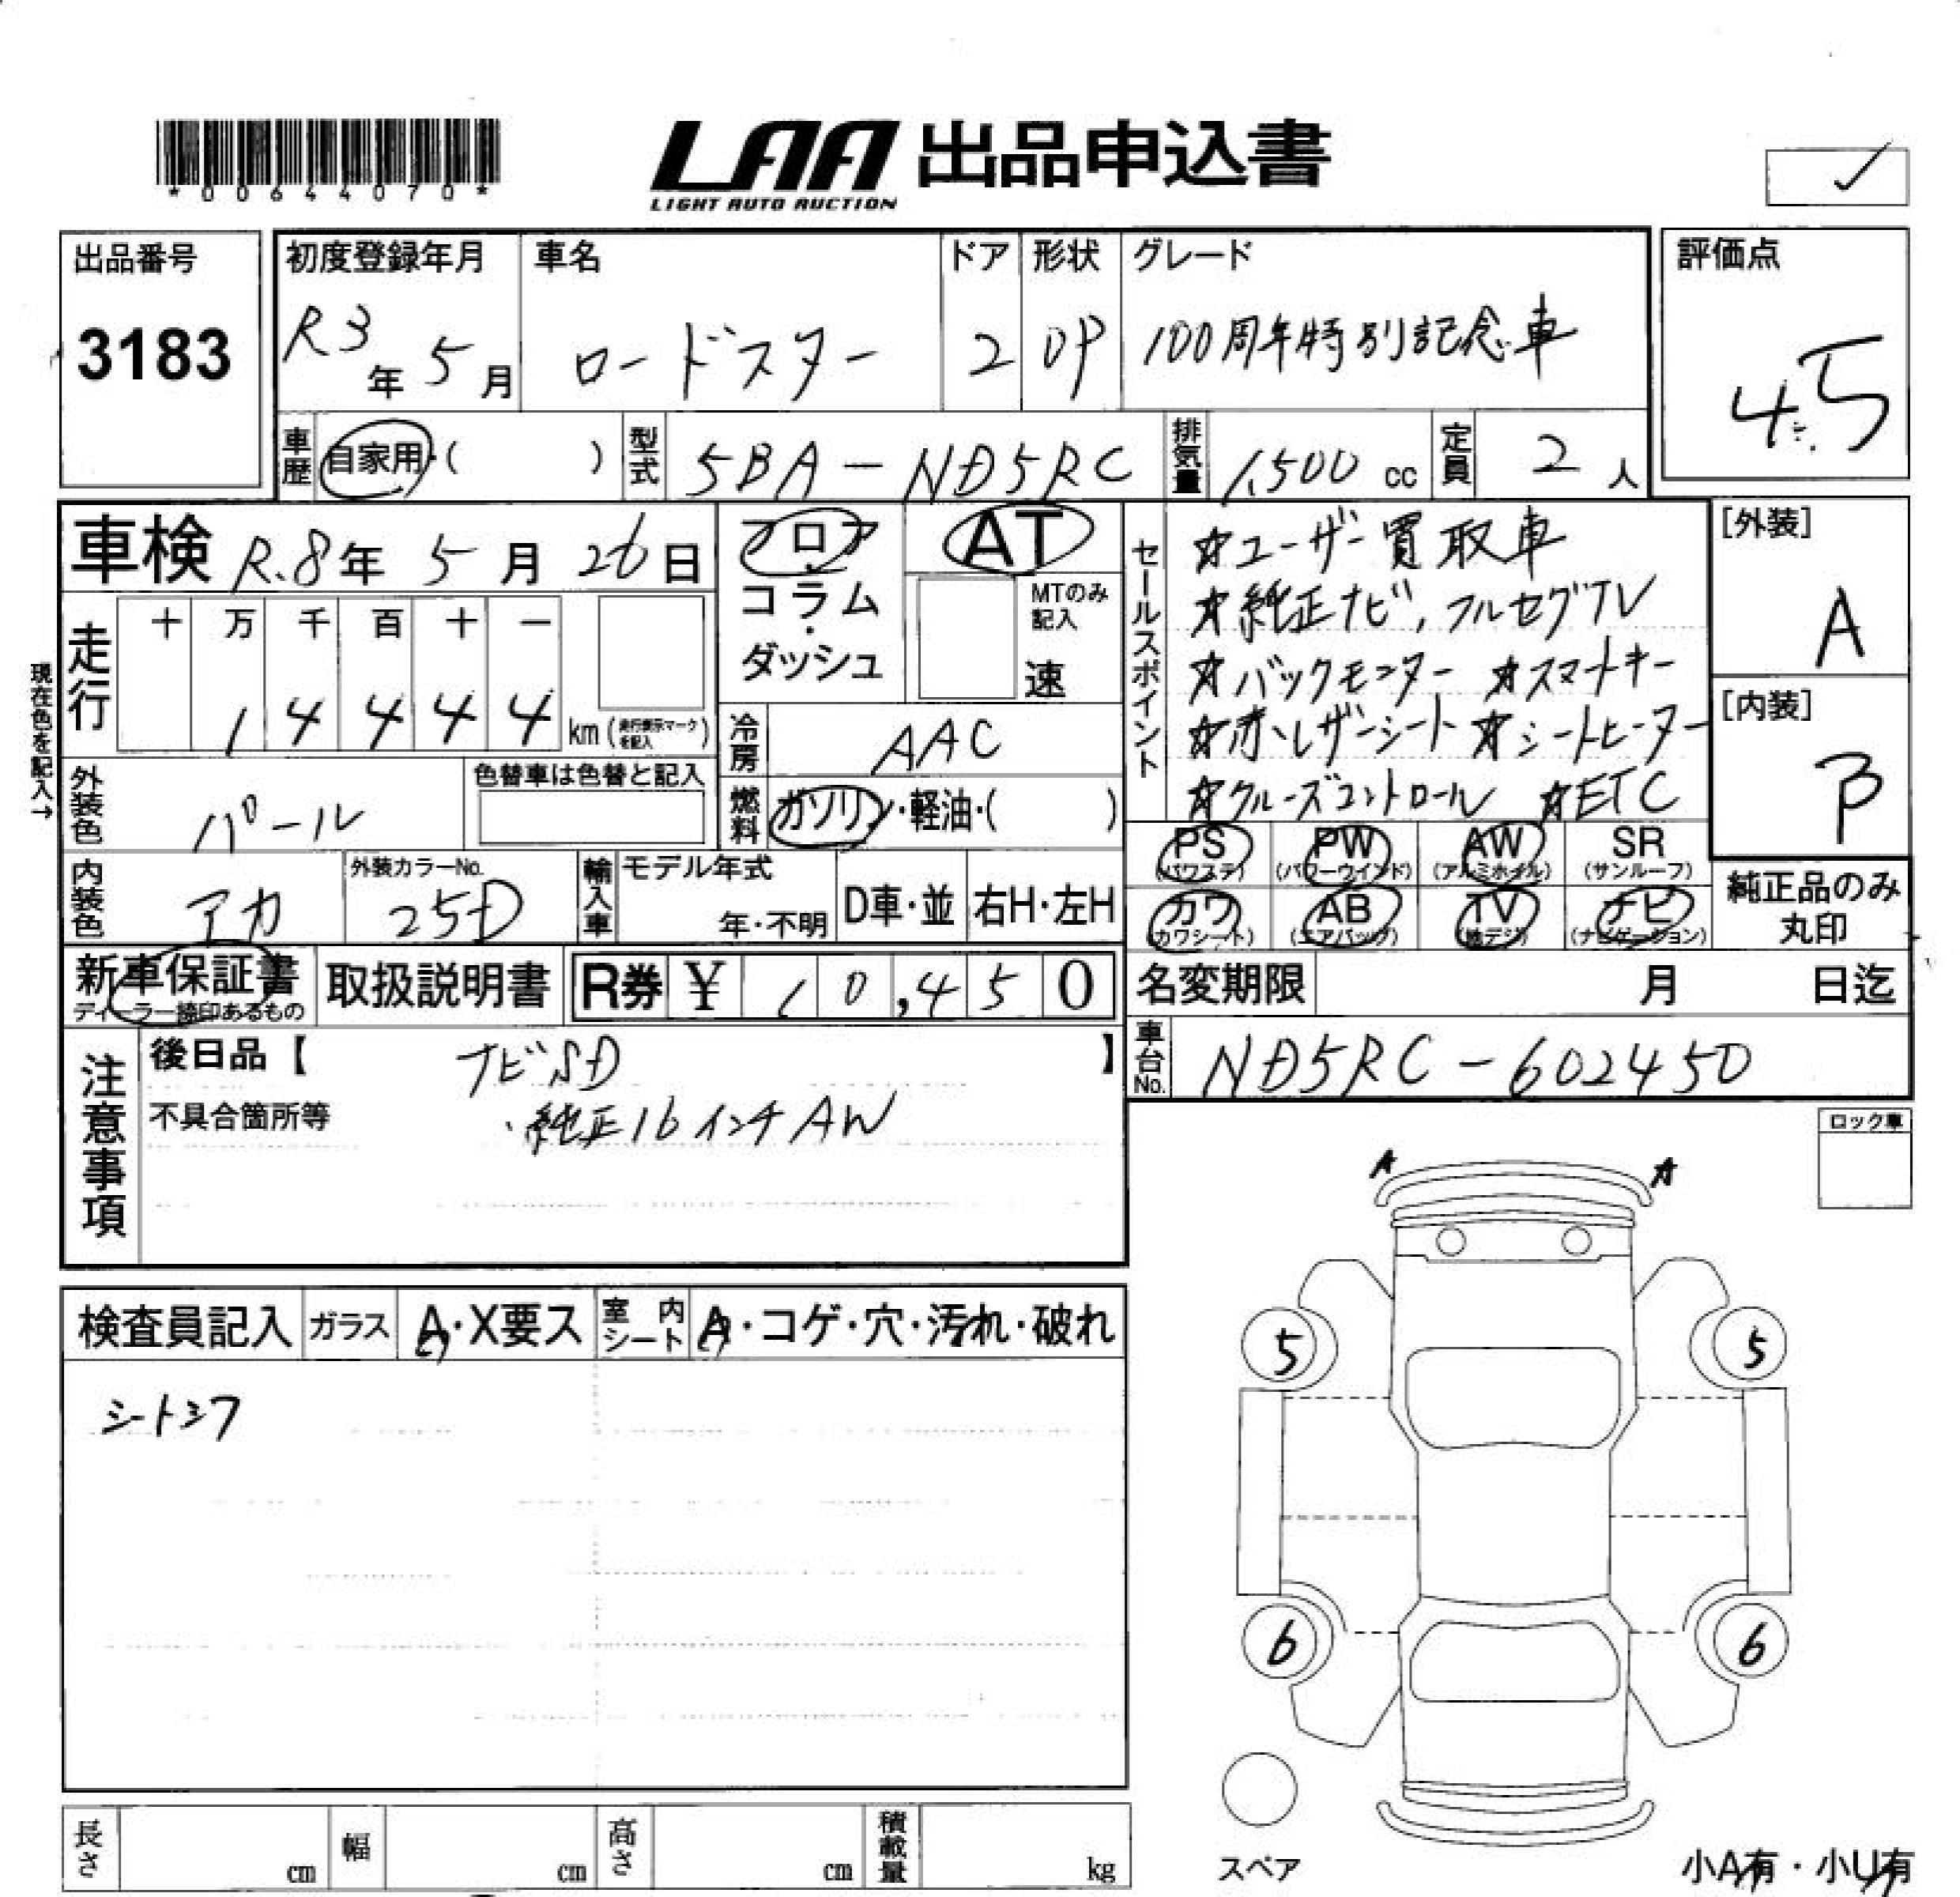 *00644070*
LAA 出品申込書
LIGHT AUTO AUCTION
出品番号
3183
初度登録年月
R3年 5月
車名
ロードスター
ドア
2
形状
OP
グレード
100周年特別記念車
評価点
4.5
車歴 自家用・( )
型式 5BA-ND5RC
排気量 1,500 cc
定員 2 人
車検 R.8年 5月 26日
フロア・コラム・ダッシュ
AT
MTのみ記入
速
走行
十 万 千 百 十 一
1 4 4 4 4 km (走行表示マークを記入)
現在色を記入→
冷房 AAC
燃料 ガソリン・軽油・( )
外装色 パール
色替車は色替と記入
内装色 アカ
外装カラーNo. 25D
輸入車 モデル年式 年・不明 D車・並 右H・左H
セールスポイント
☆ユーザー買取車
☆純正ナビ,フルセグTV
☆バックモニター ☆スマートキー
☆赤レザーシート ☆シートヒーター
☆クルーズコントロール ☆ETC
[外装]
A
[内装]
B
PS (パワステ) PW (パワーウインド) AW (アルミホイル) SR (サンルーフ)
カワ (カワシート) AB (エアバッグ) TV (地デジ) ナビ (ナビゲーション)
純正品のみ丸印
新車保証書
ディーラー捺印あるもの
取扱説明書
R券 ¥ 10,450
名変期限 月 日迄
車台No. ND5RC-602450
注意事項
後日品【 ナビSD 】
不具合箇所等 ・純正16インチAW
ロック車
A A
検査員記入 ガラス A・X要ス 室内シート A・コゲ・穴・汚れ・破れ
シートシワ
5 5
6 6
スペア
長さ cm 幅 cm 高さ cm 積載量 kg
小A有・小U有